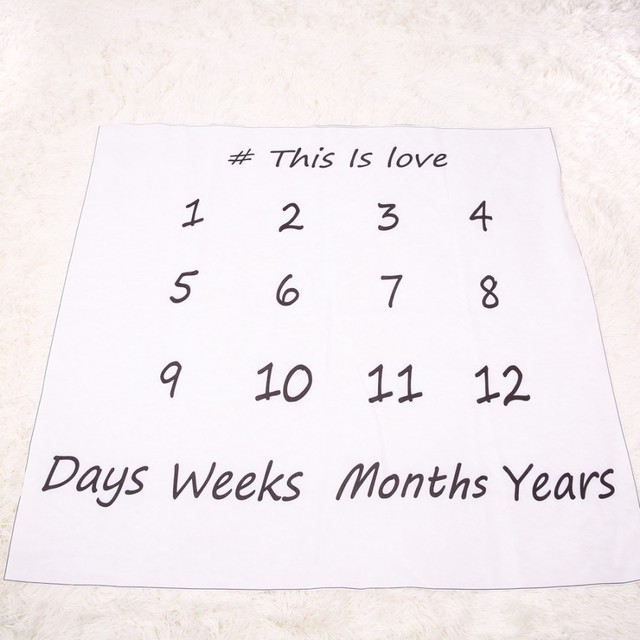 # This Is love
1 2 3 4
5 6 7 8
9 10 11 12
Days Weeks Months Years